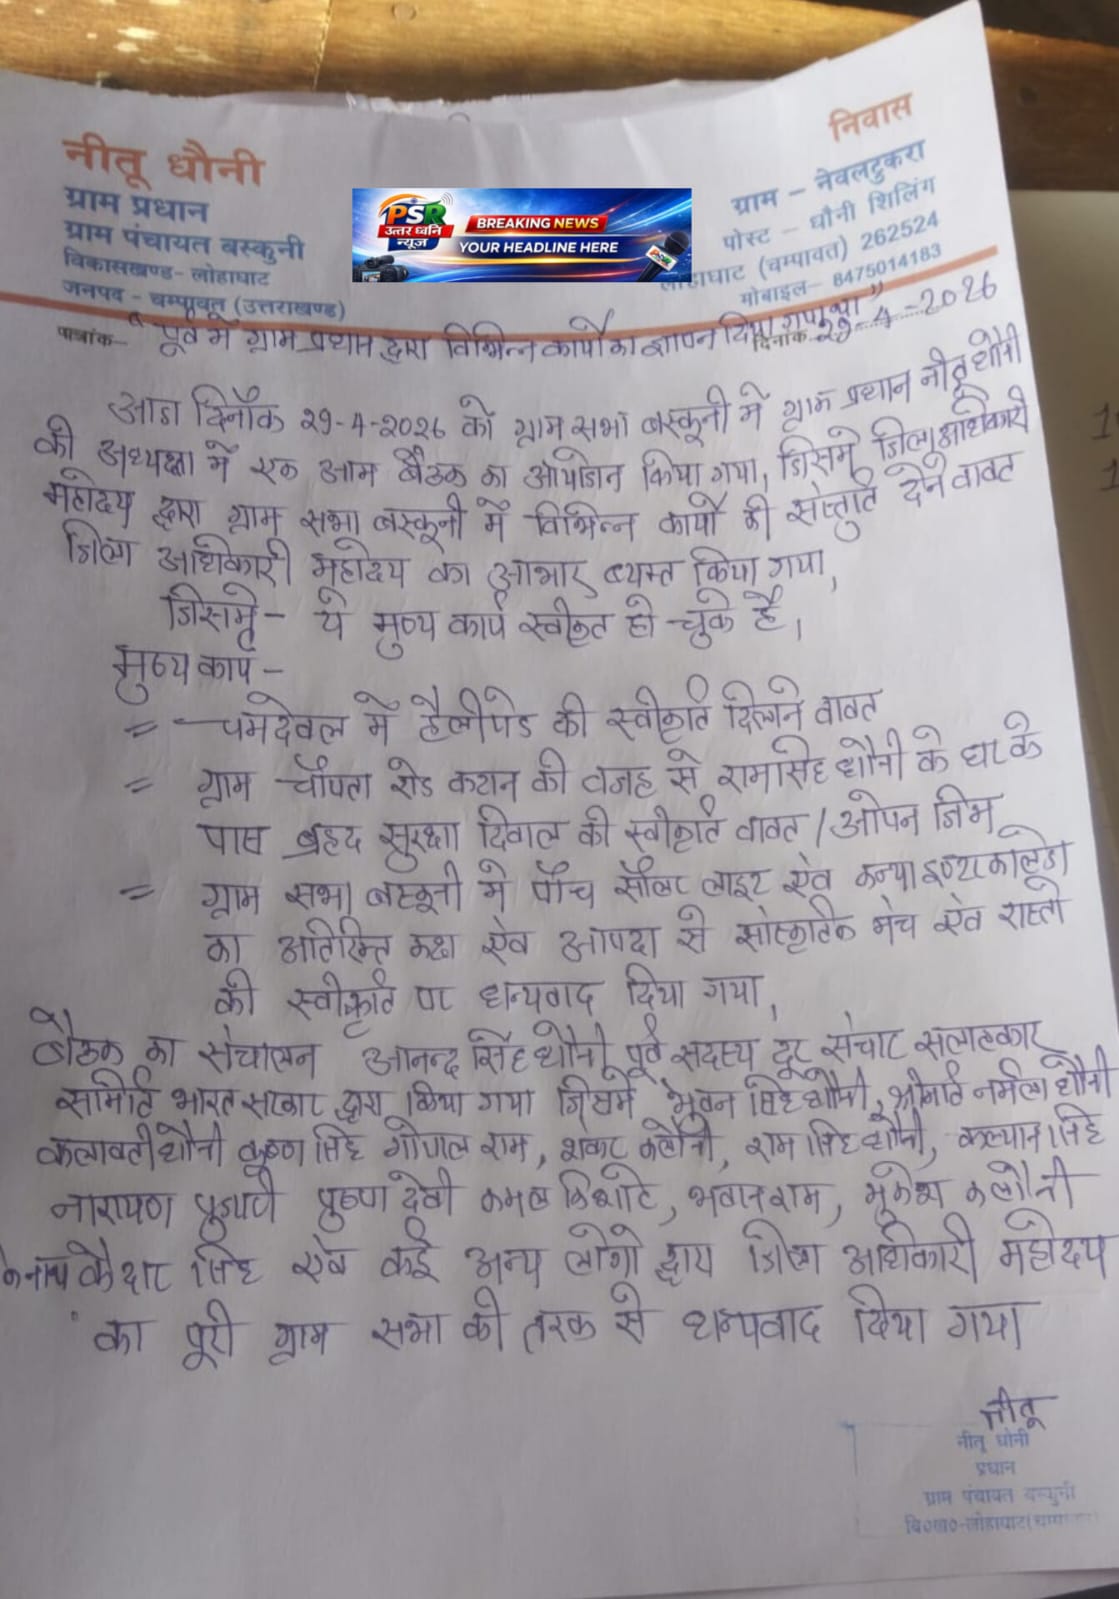 नीतू धौनी
ग्राम प्रधान
ग्राम पंचायत बस्कुनी
विकासखण्ड- लोहाघाट
जनपद - चम्पावत (उत्तराखण्ड)
PSR
उत्तर ध्वनि
न्यूज
BREAKING NEWS
YOUR HEADLINE HERE
PSR
निवास
ग्राम - नेवलटुकरा
पोस्ट - धौनी शिलिंग
लोहाघाट (चम्पावत) 262524
मोबाइल- 8475014183
पत्रांक-
दिनांक 29-4-2026
"पूर्व में ग्राम प्रधान द्वारा विभिन्न कार्यो का ज्ञापन दिया गया था"
आज दिनाँक 29-4-2026 को ग्राम सभा बस्कूनी में ग्राम प्रधान नीतू धौनी
की अध्यक्षा में एक आम बैठक का आयोजन किया गया, जिसमे जिला अधिकारी
महोदय द्वारा ग्राम सभा बस्कूनी में विभिन्न कार्यो की संस्तुति देने वावत
जिला अधिकारी महोदय का आभार व्यक्त किया गया,
जिसमे - ये मुख्य कार्य स्वीकृत हो चुके है।
मुख्य कार्य -
= चमदेवल में हैलीपेड की स्वीकृति दिलाने वावत
= ग्राम चौपता रोड कटान की वजह से रामसिंह धौनी के घर के
पास ब्रहद सुरक्षा दिवाल की स्वीकृति वावत / ओपन जिम
= ग्राम सभा बस्कूनी में पाँच सौलर लाइट ऐंव कन्या इण्टर कालेज
का अतिरिक्त कक्ष ऐंव आपदा से सांस्कृतिक मंच ऐंव रास्तो
की स्वीकृति पर धन्यवाद दिया गया,
बैठक का संचालन आनन्द सिंह धौनी पूर्व सदस्य दूर संचार सलाहकार
समिति भारत सरकार द्वारा किया गया जिसमे भुवन सिंह धौनी, श्रीमति निर्मला धौनी
कलावती धौनी कृष्ण सिंह गोपाल राम, शंकर कलौनी, राम सिंह धौनी, कल्यान सिंह
नारायण पुजारी पुष्पा देवी कमल किशोर, भवान राम, मुकेश कलौनी
कैदार सिंह ऐंव कई अन्य लोगो द्वारा जिला अधिकारी महोदय
का पूरी ग्राम सभा की तरफ से धन्यवाद दिया गया
नीतू
नीतू धौनी
प्रधान
ग्राम पंचायत बस्कुनी
वि०ख०-लोहाघाट(चम्पावत)